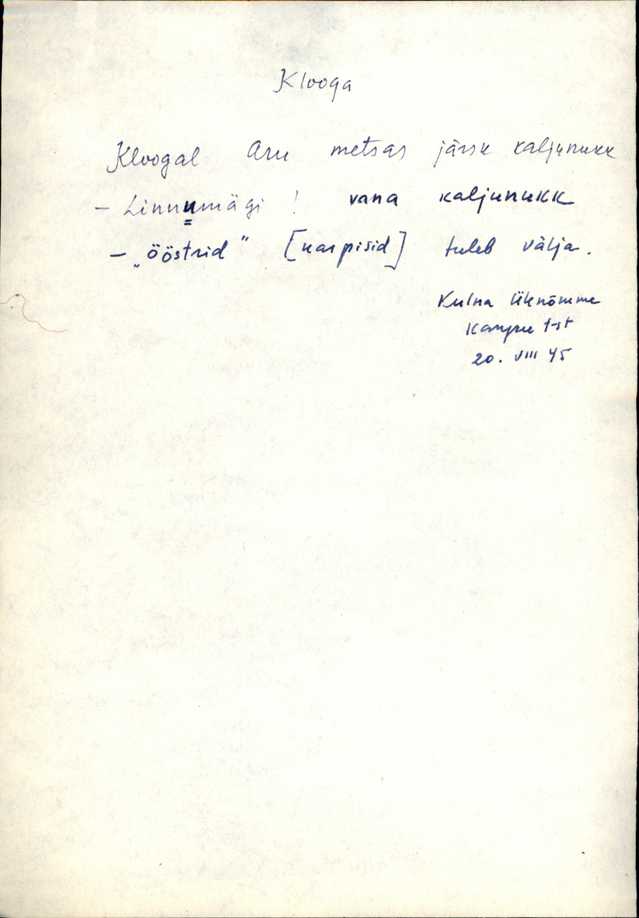 Klooga
Kloogal Aru metsas järsk kaljunukk
- Linnumägi ! vana kaljunukk
- „ööstrid" [karpisid] tuleb välja.
Kulna Üknõmme
1-st
20. VIII 45